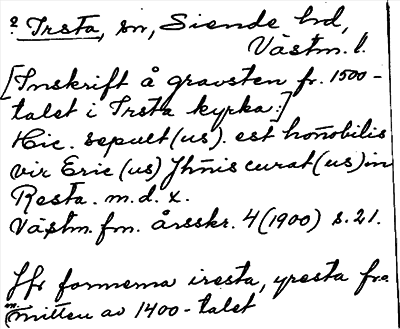 2 Irsta, sn, Siende hd,
Västm. l.
[Inskrift å gravsten fr. 1500-
talet i Irsta kyrka:]
Hic. sepult(us). est honobilis
vir Eric(us) Jhnis curat(us) in
Resta. m.d.x.
Västm. fm. årsskr. 4 (1900) s. 21.
Jfr formerna iresta, yresta fra
m. mitten av 1400-talet